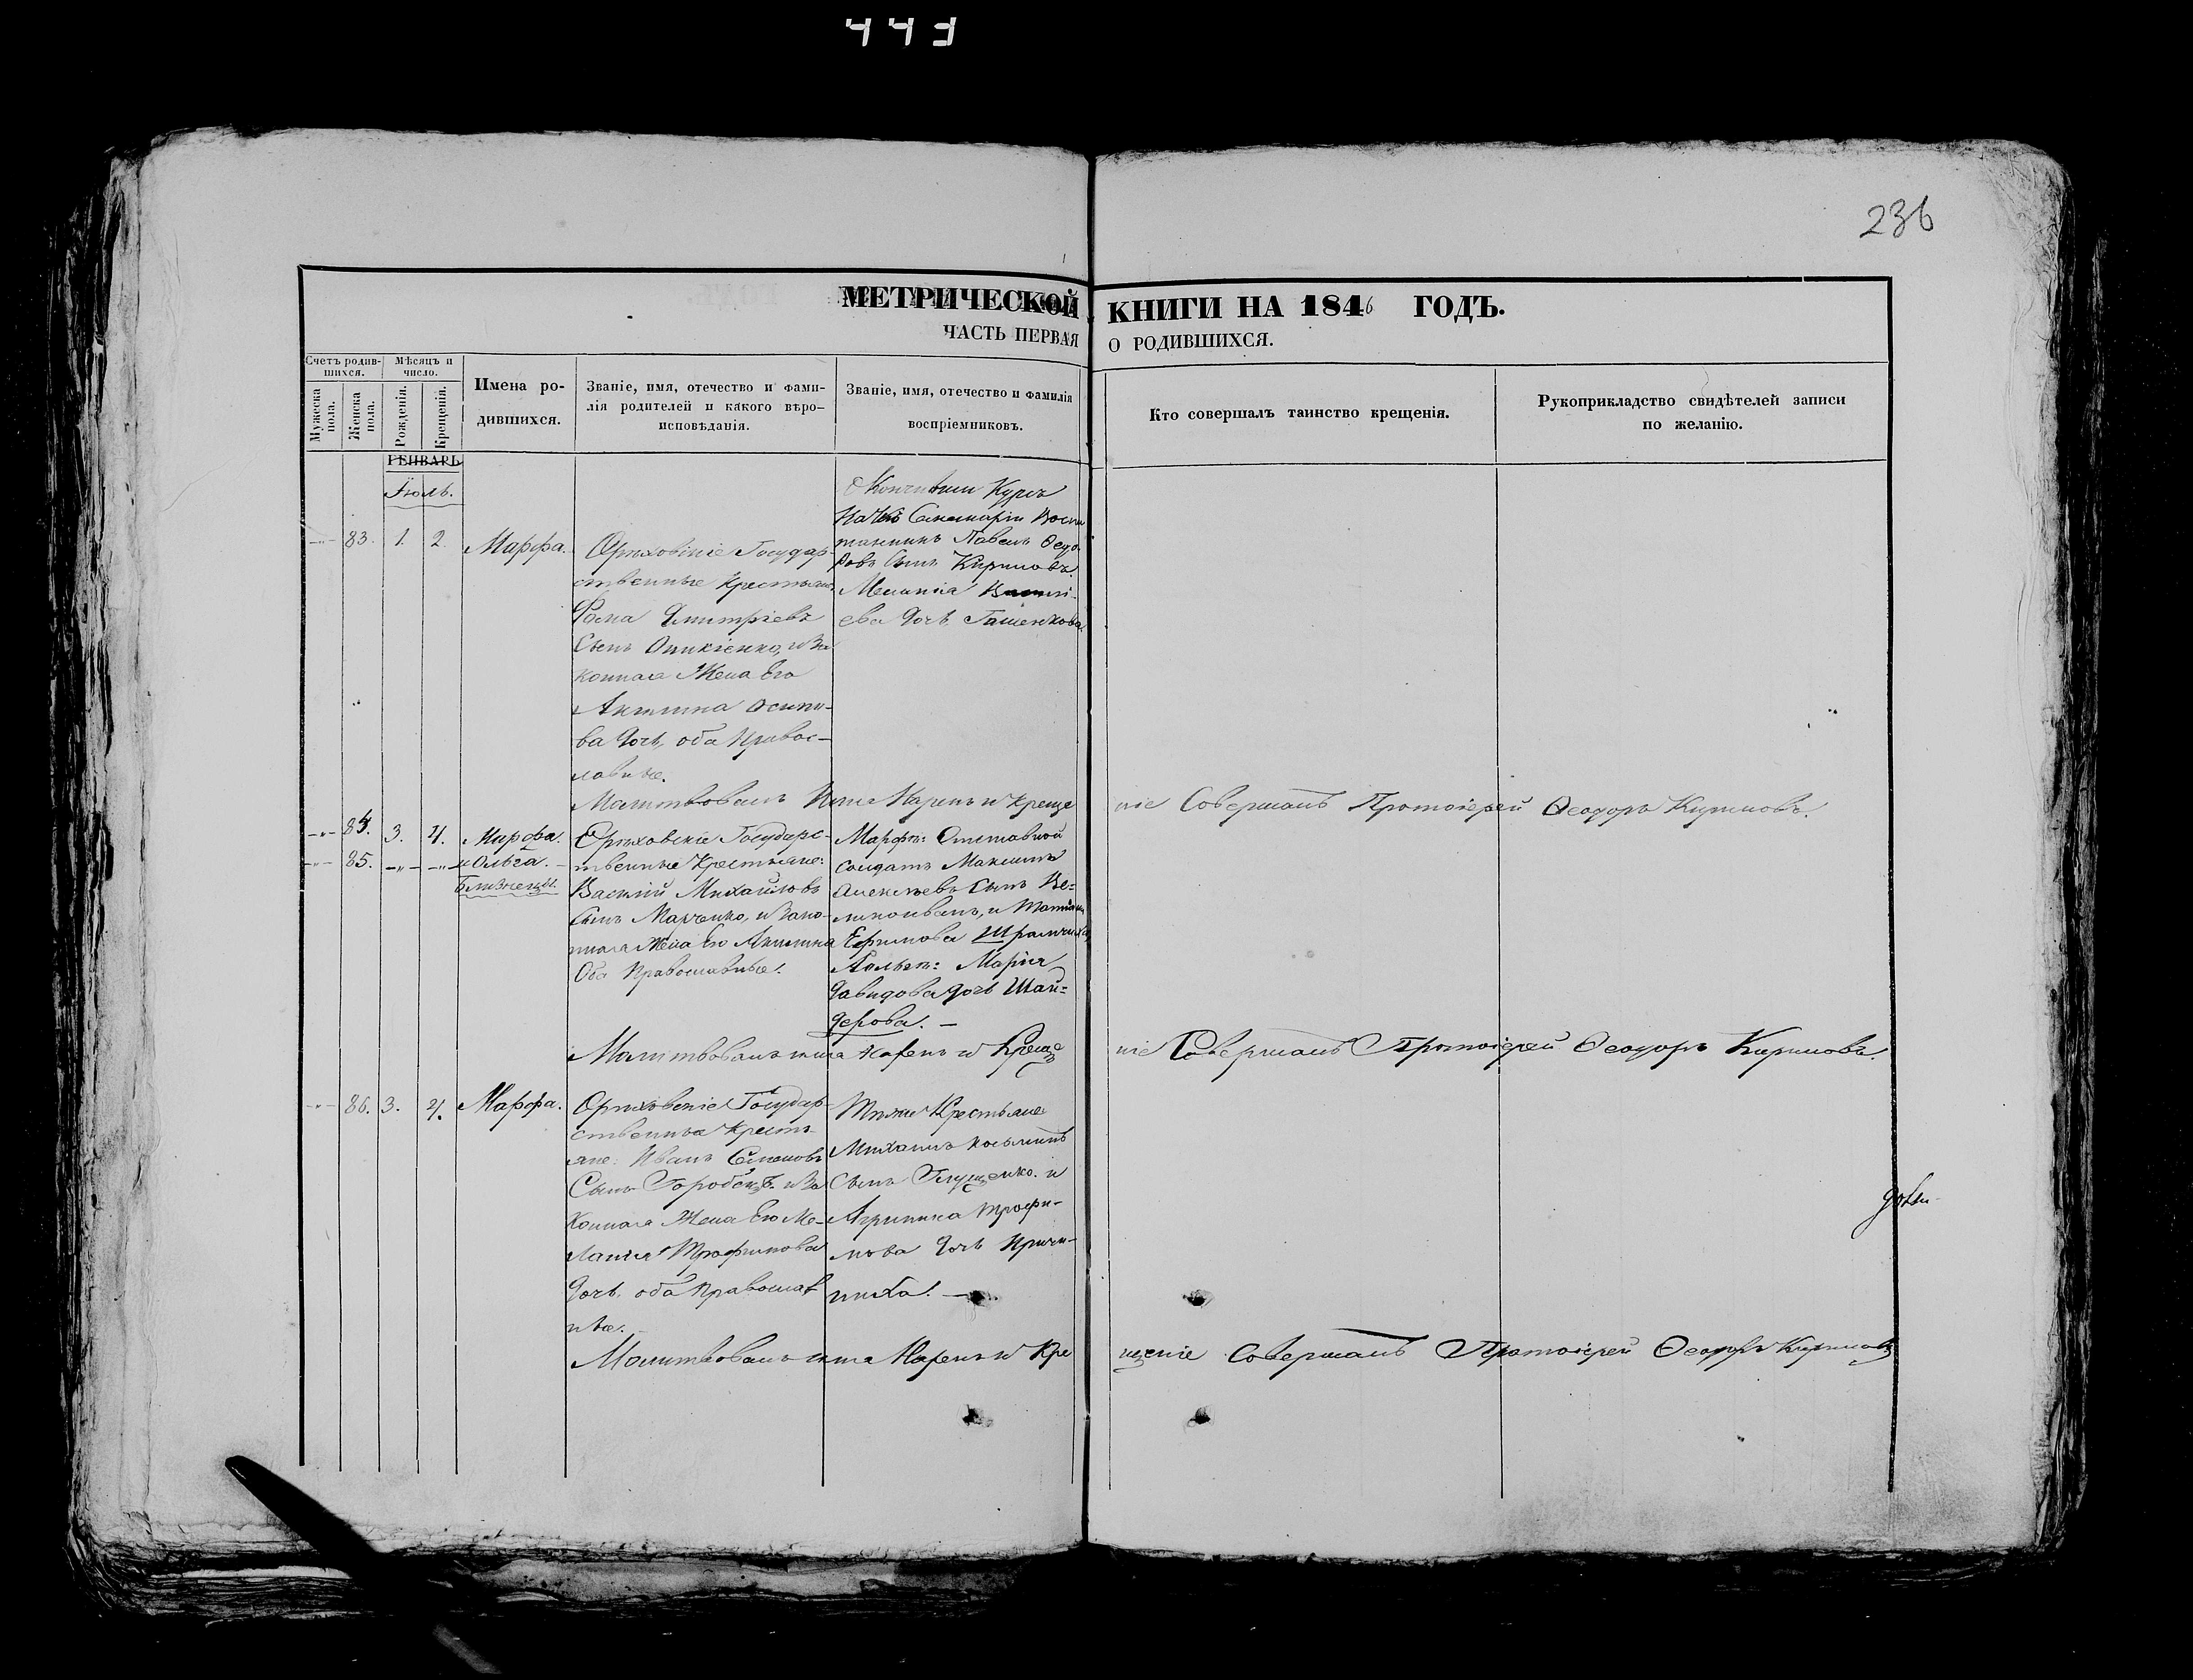 443
236
МЕТРИЧЕСКОЙ КНИГИ НА 1846 ГОДЪ.
ЧАСТЬ ПЕРВАЯ О РОДИВШИХСЯ.
Счетъ родившихся.
Мѣсяцъ и число.
Мужеска пола.
Женска пола.
Рожденія.
Крещенія.
Имена родившихся.
Званіе, имя, отечество и фами-
лія родителей и какого вѣро-
исповѣданія.
Званіе, имя, отечество и фамилія
воспріемниковъ.
Кто совершалъ таинство крещенія.
Рукоприкладство свидѣтелей записи
по желанію.
ГЕНВАРЬ
Іюль.
83. 1. 2. Марѳа.
Орѣховскіе Государ-
ственные Крестьяне
Ѳома Дмитріевъ
Сынъ Оникіенко, и За
конная Жена Его
Акилина Осипо-
ва Дочь, оба Правос-
лавные.
Окончивши Курсъ
Семинаріи Воспи
танникъ Павелъ Ѳедо
ровъ Сынъ Кириловъ.
Меланія
ева Дочь
Молитвовалъ Имя Нарекъ и Креще
ніе Совершалъ Протоіерей Ѳеодоръ Кириловъ.
84. 3. 4. Марѳа.
85. и Ольга.
Близнецы.
Орѣховскіе Государс-
твенные Крестьяне:
Василій Михайловъ
Сынъ Марченко, и Зако-
нная Жена Его Акилина
Оба Православные.
Марѳѣ: Отставной
солдатъ Максимъ
Алексѣевъ Сынъ Ве-
ликоиванъ, и
Ефимова
Ольгѣ: Марія
Давидова дочь Шай-
дерова.
Молитвовалъ имя Нарекъ и Креще
ніе Совершалъ Протоіерей Ѳеодоръ Кириловъ.
86. 3. 4. Марѳа.
Орѣховскіе Государ-
ственные Кресть-
яне: Иванъ Семеновъ
Сынъ Горобецъ. и За
Конная Жена Его Ме-
ланія Трофимова
Дочь, оба Православ
ные.
Тѣже Крестьяне
Михаилъ Косьминъ
Сынъ Глущенко. и
Агрипина Трофи-
мова Дочь
Молитвовалъ имя Нарекъ и Кре
щеніе Совершалъ Протоіерей Ѳеодоръ Кириловъ